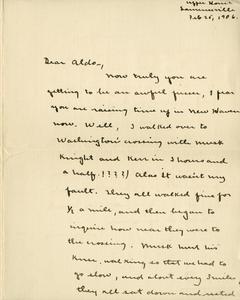 Upper House
Lawrenceville
Feb 25, 1906.
Dear Aldo-,
Now truly you are
getting to be an awful fusser, I fear
you are raising time up in New Haven
now. Well, I walked over to
Washington's crossing with Musk
Knight and Kerr in 3 hours and
a half.!???) Alas it wasn't my
fault. They all walked fine for
½ a mile, and then began to
inquire how near they were to
the crossing. Musk hurt his
knee, walking so that we had to
go slow, and about every 3 miles
they all sat down and rested